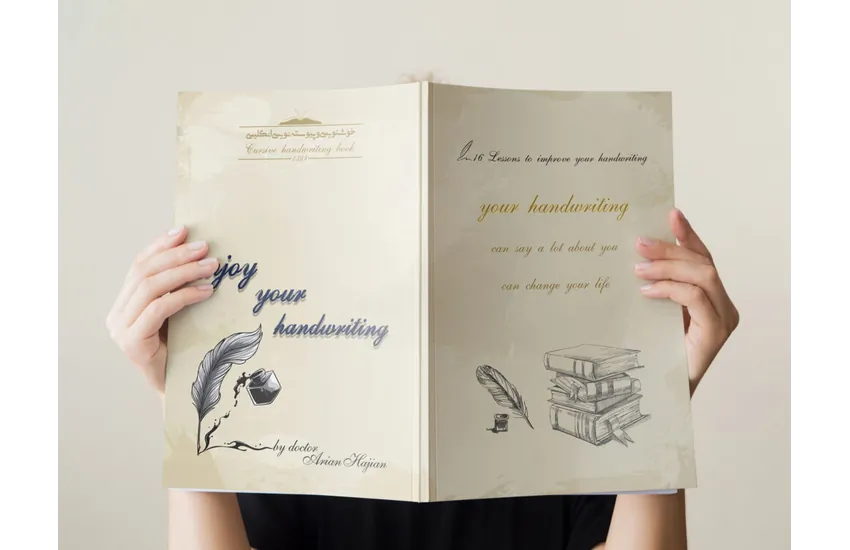 خوشنویسی و پیوسته نویسی انگلیسی
Cursive handwriting book
njoy
your
handwriting
by doctor
Arian Hajian
16 Lessons to improve your handwriting
your handwriting
can say a lot about you
can change your life